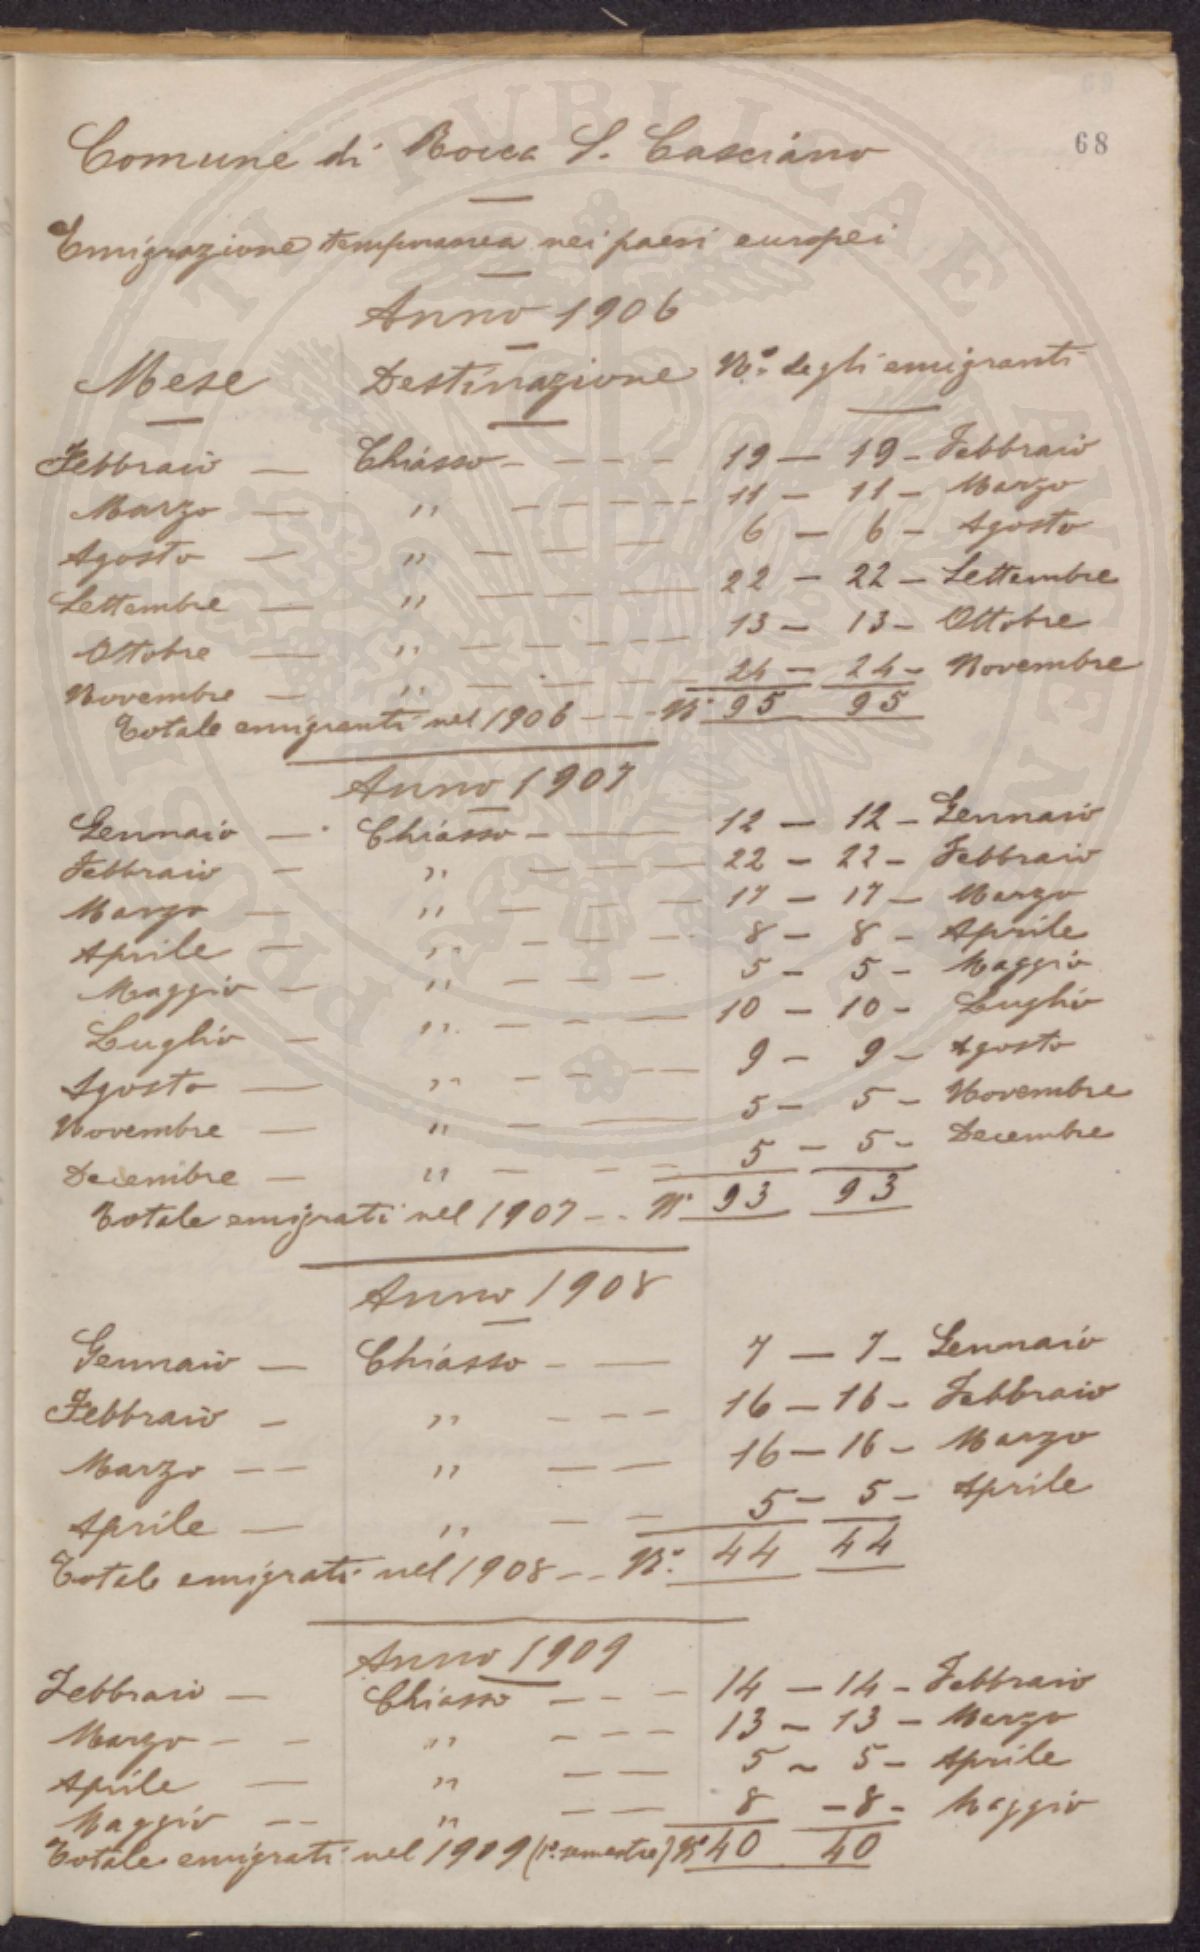 68
Comune di Rocca S. Casciano
Emigrazione temporanea nei paesi europei
Anno 1906
Mese Destinazione N.° degli emigranti
Febbraio — Chiasso - - - - 19 — 19 - Febbraio
Marzo — " - - - - 11 - 11 - Marzo
Agosto — " - - - - 6 - 6 - Agosto
Settembre — " - - - - 22 - 22 - Settembre
Ottobre — " - - - - 13 - 13 - Ottobre
Novembre — " - - - - 24 - 24 - Novembre
Totale emigranti nel 1906 - - - N.° 95 95
Anno 1907
Gennaio — Chiasso - — 12 - 12 - Gennaio
Febbraio - " - - - - 22 - 22 - Febbraio
Marzo - " - - - - 17 - 17 - Marzo
Aprile - " - - - - 8 - 8 - Aprile
Maggio - " - - - - 5 - 5 - Maggio
Luglio - " - - - 10 - 10 - Luglio
Agosto — " - - - - 9 - 9 - Agosto
Novembre - " - — 5 - 5 - Novembre
Decembre - " - - - 5 - 5 - Decembre
Totale emigrati nel 1907 - - N.° 93 93
Anno 1908
Gennaio — Chiasso - — 7 — 7 - Gennaio
Febbraio - " - - - 16 - 16 - Febbraio
Marzo - - " - - 16 - 16 - Marzo
Aprile — " - - 5 - 5 - Aprile
Totale emigrati nel 1908 - - N.° 44 44
Anno 1909
Febbraio - Chiasso - - - 14 - 14 - Febbraio
Marzo - - " - - - 13 - 13 - Marzo
Aprile — " - - 5 - 5 - Aprile
Maggio - - " - - 8 - 8 - Maggio
Totale emigrati nel 1909 (1° semestre) N° 40 40